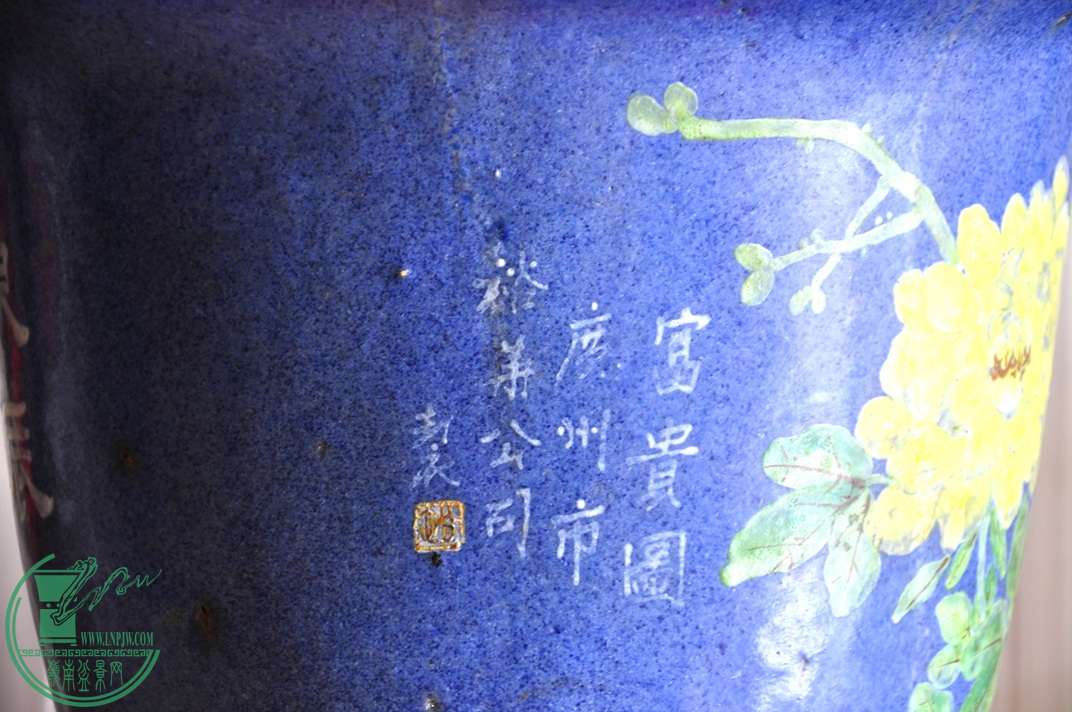 富貴圖
廣州市
裕華公司
WWW.LNPJW.COM
嶺南盆景网